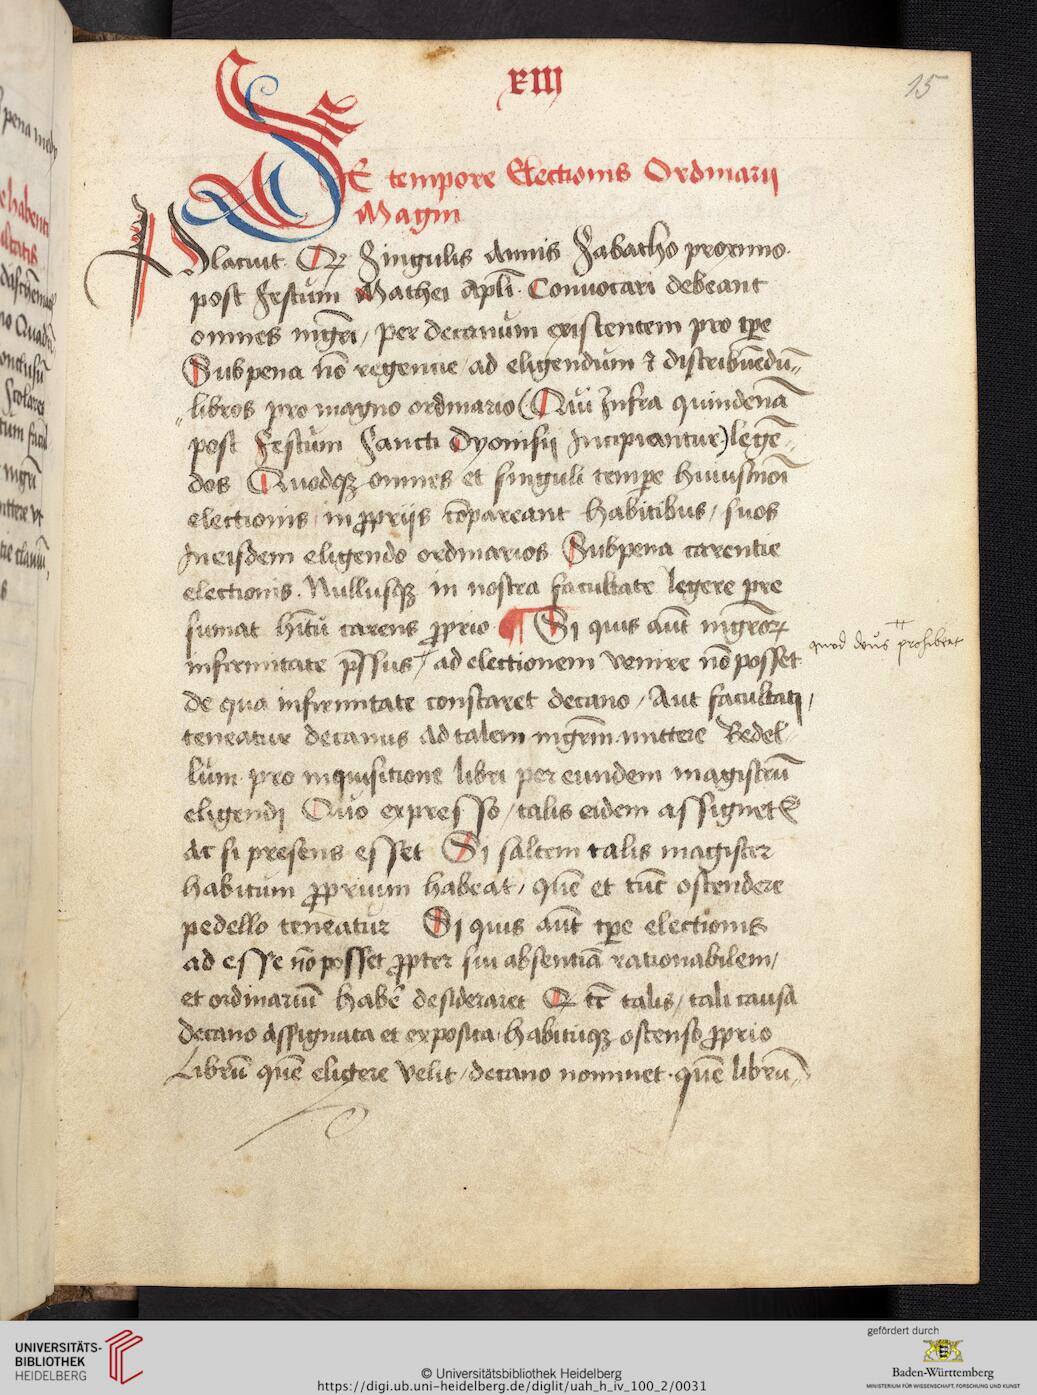 XIII
15
DE tempore Electionis Ordinarii
Magni
Placuit Qꝫ Singulis Annis Sabatho proximo
post Festum Mathei Apl̅i Convocari debeant
omnes mgr̅i / per decanum existentem pro tp̅e
Subpena no̅ regentie / ad eligendum ⁊ distribue̅du̅=
=libros pro magno ordinario (Qui Infra quindena̅
post Festum Sancti Dyonisii Incipiantur) lege̅=
dos Quodqꝫ omnes et singuli tempe huiusmo̅i
electionis in ꝓpriis co̅pareant habitibus / suos
In eisdem eligendo ordinarios Subpena carentie
electionis. Nullusqꝫ in nostra facultate legere pre
sumat h̅itu̅ carens ꝓprio ¶ Si quis aut̅ mgr̅orꝫ
quod deus prohibeat
infirmitate p̅ssus / ad electionem venire no̅ posset
de qua infirmitate constaret decano / Aut facultati /
teneatur decanus Ad talem mgr̅m mittere Bedel
lum pro inquisitione libri per eundem magistru̅
eligendi Quo expresso / talis eidem assignet᷑
Ac si presens esset Si saltem talis magister
habitum ꝓprium habeat / que̅ et tu̅c ostendere
pedello teneatur Si quis aut̅ tp̅e electionis
ad esse no̅ posset ꝓpter sui absentia̅ rationabilem /
et ordinariu̅ habe̅ desideraret Qꝫ tc̅ talis / tali causa
decano Assignata et exposita habituqꝫ ostenso ꝓprio
Libru̅ que̅ eligere velit / decano nominet . que̅ libru̅=
UNIVERSITÄTS-
BIBLIOTHEK
HEIDELBERG
© Universitätsbibliothek Heidelberg
https://digi.ub.uni-heidelberg.de/diglit/uah_h_iv_100_2/0031
gefördert durch
Baden-Württemberg
MINISTERIUM FÜR WISSENSCHAFT, FORSCHUNG UND KUNST